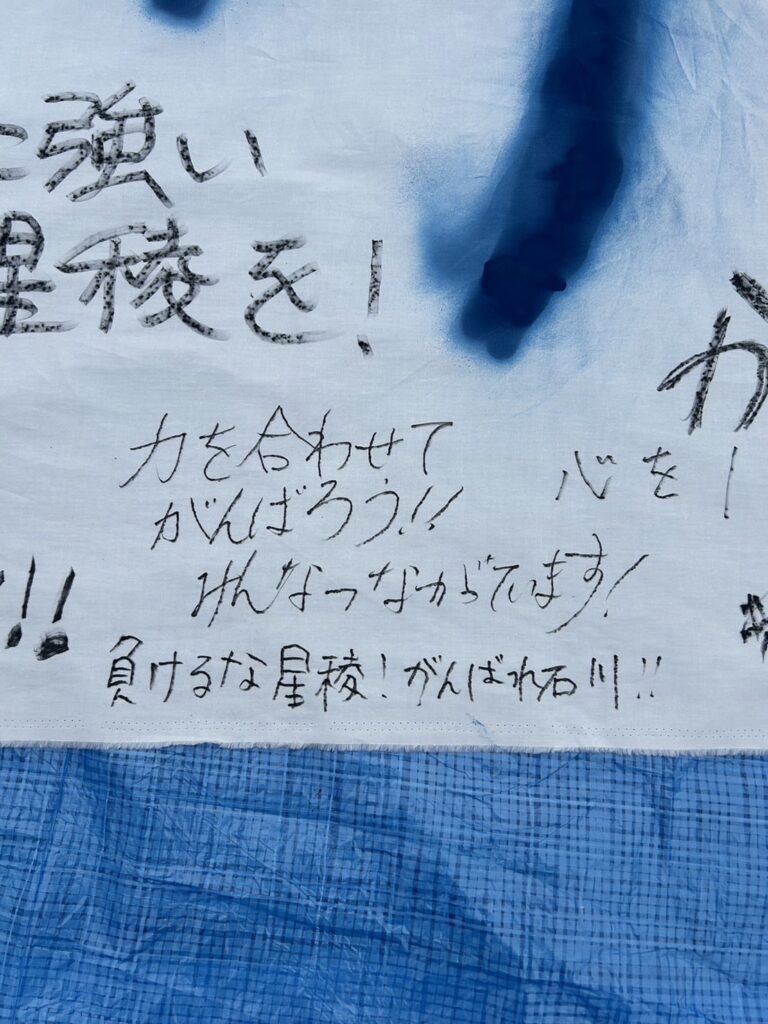 に強い
星稜を!
か
力を合わせて
がんばろう!!
心を!
みんなつながっています!
!!
負けるな星稜!がんばれ石川!!